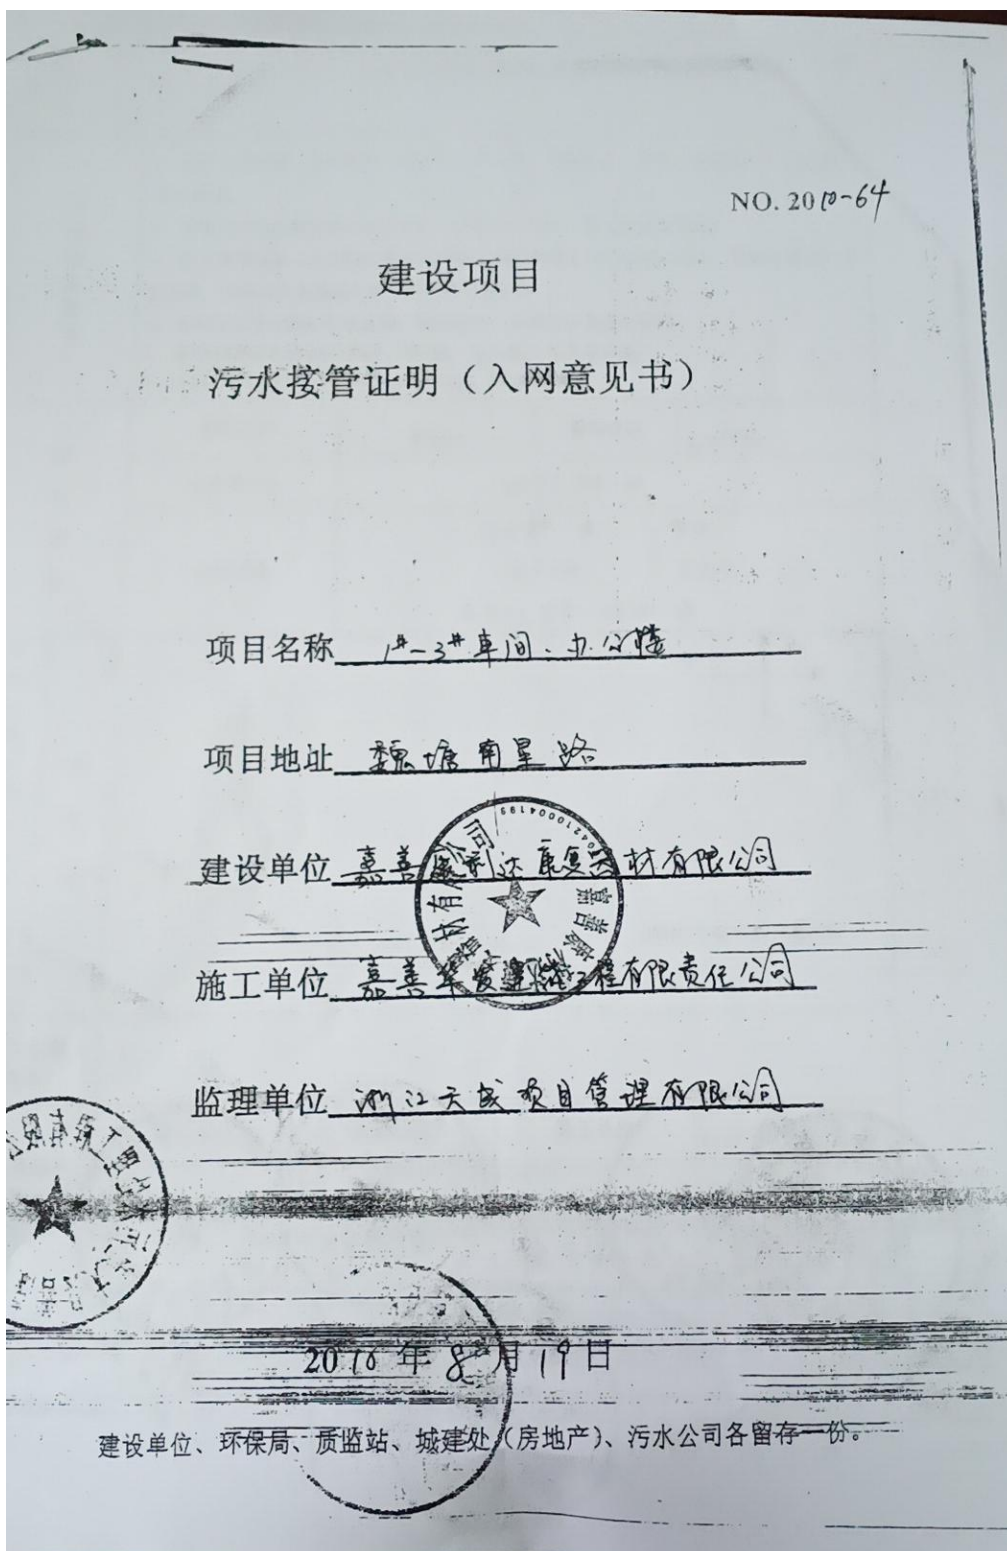 NO. 2010-64
建设项目
污水接管证明（入网意见书）
项目名称 1#-3#车间、办公楼
项目地址 魏塘南星路
建设单位 嘉善康复材有限公司
施工单位 嘉善工程有限责任公司
监理单位 浙江天成项目管理有限公司
2010年8月19日
建设单位、环保局、质监站、城建处（房地产）、污水公司各留存一份。